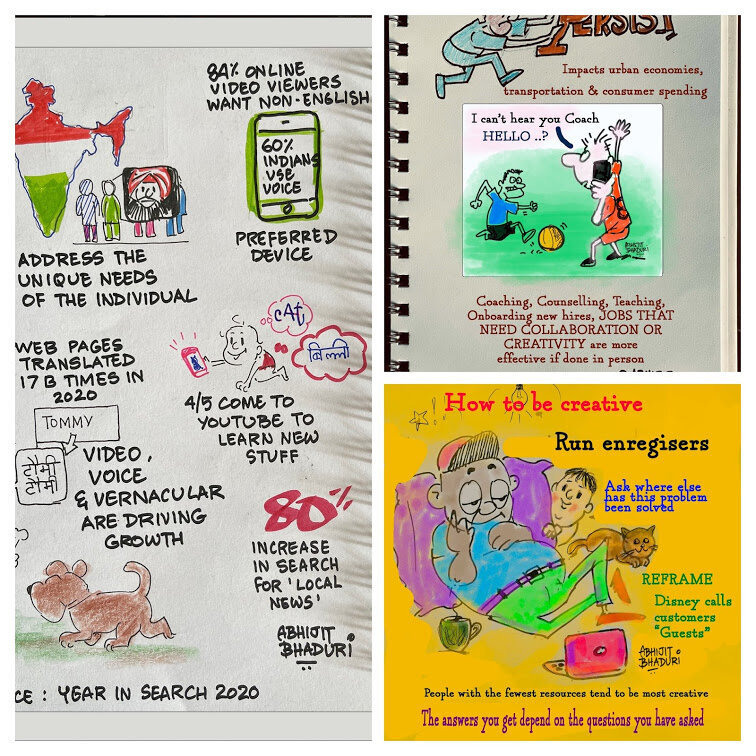 84% ONLINE
VIDEO VIEWERS
WANT NON-ENGLISH
60%
INDIANS
USE
VOICE
PREFERRED
DEVICE
ADDRESS THE
UNIQUE NEEDS
OF THE INDIVIDUAL
WEB PAGES
TRANSLATED
17 B TIMES IN
2020
TOMMY
टौमी
टौमी
VIDEO,
VOICE
& VERNACULAR
ARE DRIVING
GROWTH
cAt
बिल्ली
4/5 COME TO
YOUTUBE TO
LEARN NEW
STUFF
80%
INCREASE
IN SEARCH
FOR 'LOCAL
NEWS'
ABHIJIT
BHADURI
CE : YEAR IN SEARCH 2020
PERSIST
Impacts urban economies,
transportation & consumer spending
I can't hear you Coach
HELLO ..?
ABHIJIT
BHADURI
Coaching, Counselling, Teaching,
Onboarding new hires, JOBS THAT
NEED COLLABORATION OR
CREATIVITY are more
effective if done in person
How to be creative
Run enregisers
Ask where else
has this problem
been solved
REFRAME
Disney calls
customers
"Guests"
ABHIJIT
BHADURI
People with the fewest resources tend to be most creative
The answers you get depend on the questions you have asked